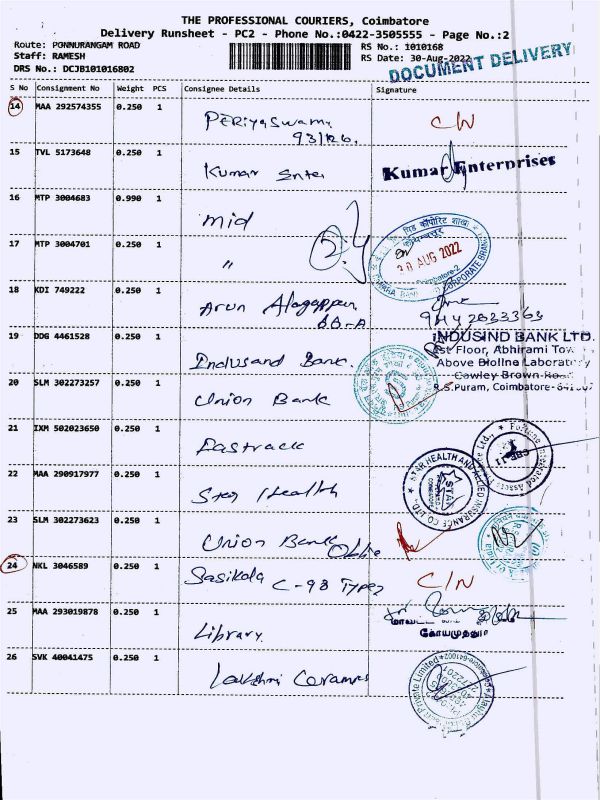 THE PROFESSIONAL COURIERS, Coimbatore
Delivery Runsheet - PC2 - Phone No.:0422-3505555 - Page No.:2
Route: PONNURANGAM ROAD
RS No.: 1010168
Staff: RAMESH
RS Date: 30-Aug-2022
DRS No.: DCJB101016802
DOCUMENT DELIVERY
S No Consignment No Weight PCS Consignee Details Signature
14 MAA 292574355 0.250 1 Periyaswamy C/N
93/126.
15 TVL 5173648 0.250 1 Kumar Enter Kumar Enterprises
16 MTP 3004683 0.990 1 mid
17 MTP 3004701 0.250 1 "
30 AUG 2022
Coimbatore-2
CORPORATE BRANCH
18 KDI 749222 0.250 1 Arun Alagappan
88-A
9442633363
19 DDG 4461528 0.250 1 Indusand Bank.
INDUSIND BANK LTD.
1st Floor, Abhirami
Above Bioline Laboratory
Cowley Brown Road
R.S.Puram, Coimbatore-641
20 SLM 302273257 0.250 1 Union Bank
21 IXM 502023650 0.250 1 Fastrack
22 MAA 290917977 0.250 1 Star Health
STAR HEALTH AND ALLIED INSURANCE CO LTD.
23 SLM 302273623 0.250 1 Union Bank
24 NKL 3046589 0.250 1 Sasikala C-98 Type2 C/N
25 MAA 293019878 0.250 1 Library.
கோயமுத்தூர்
26 SVK 40041475 0.250 1 Lakshmi Ceramics
Private Limited